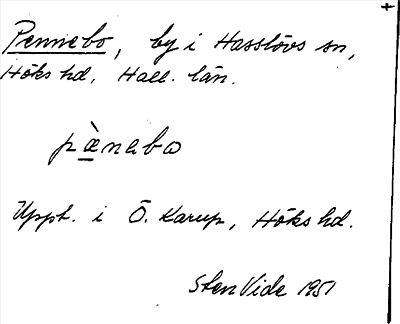 Pennebo, by i Hasslövs sn,
Höks hd, Hall. län.
pæ̀nabo
Uppt. i Ö. Karup, Höks hd.
Sten Vide 1951